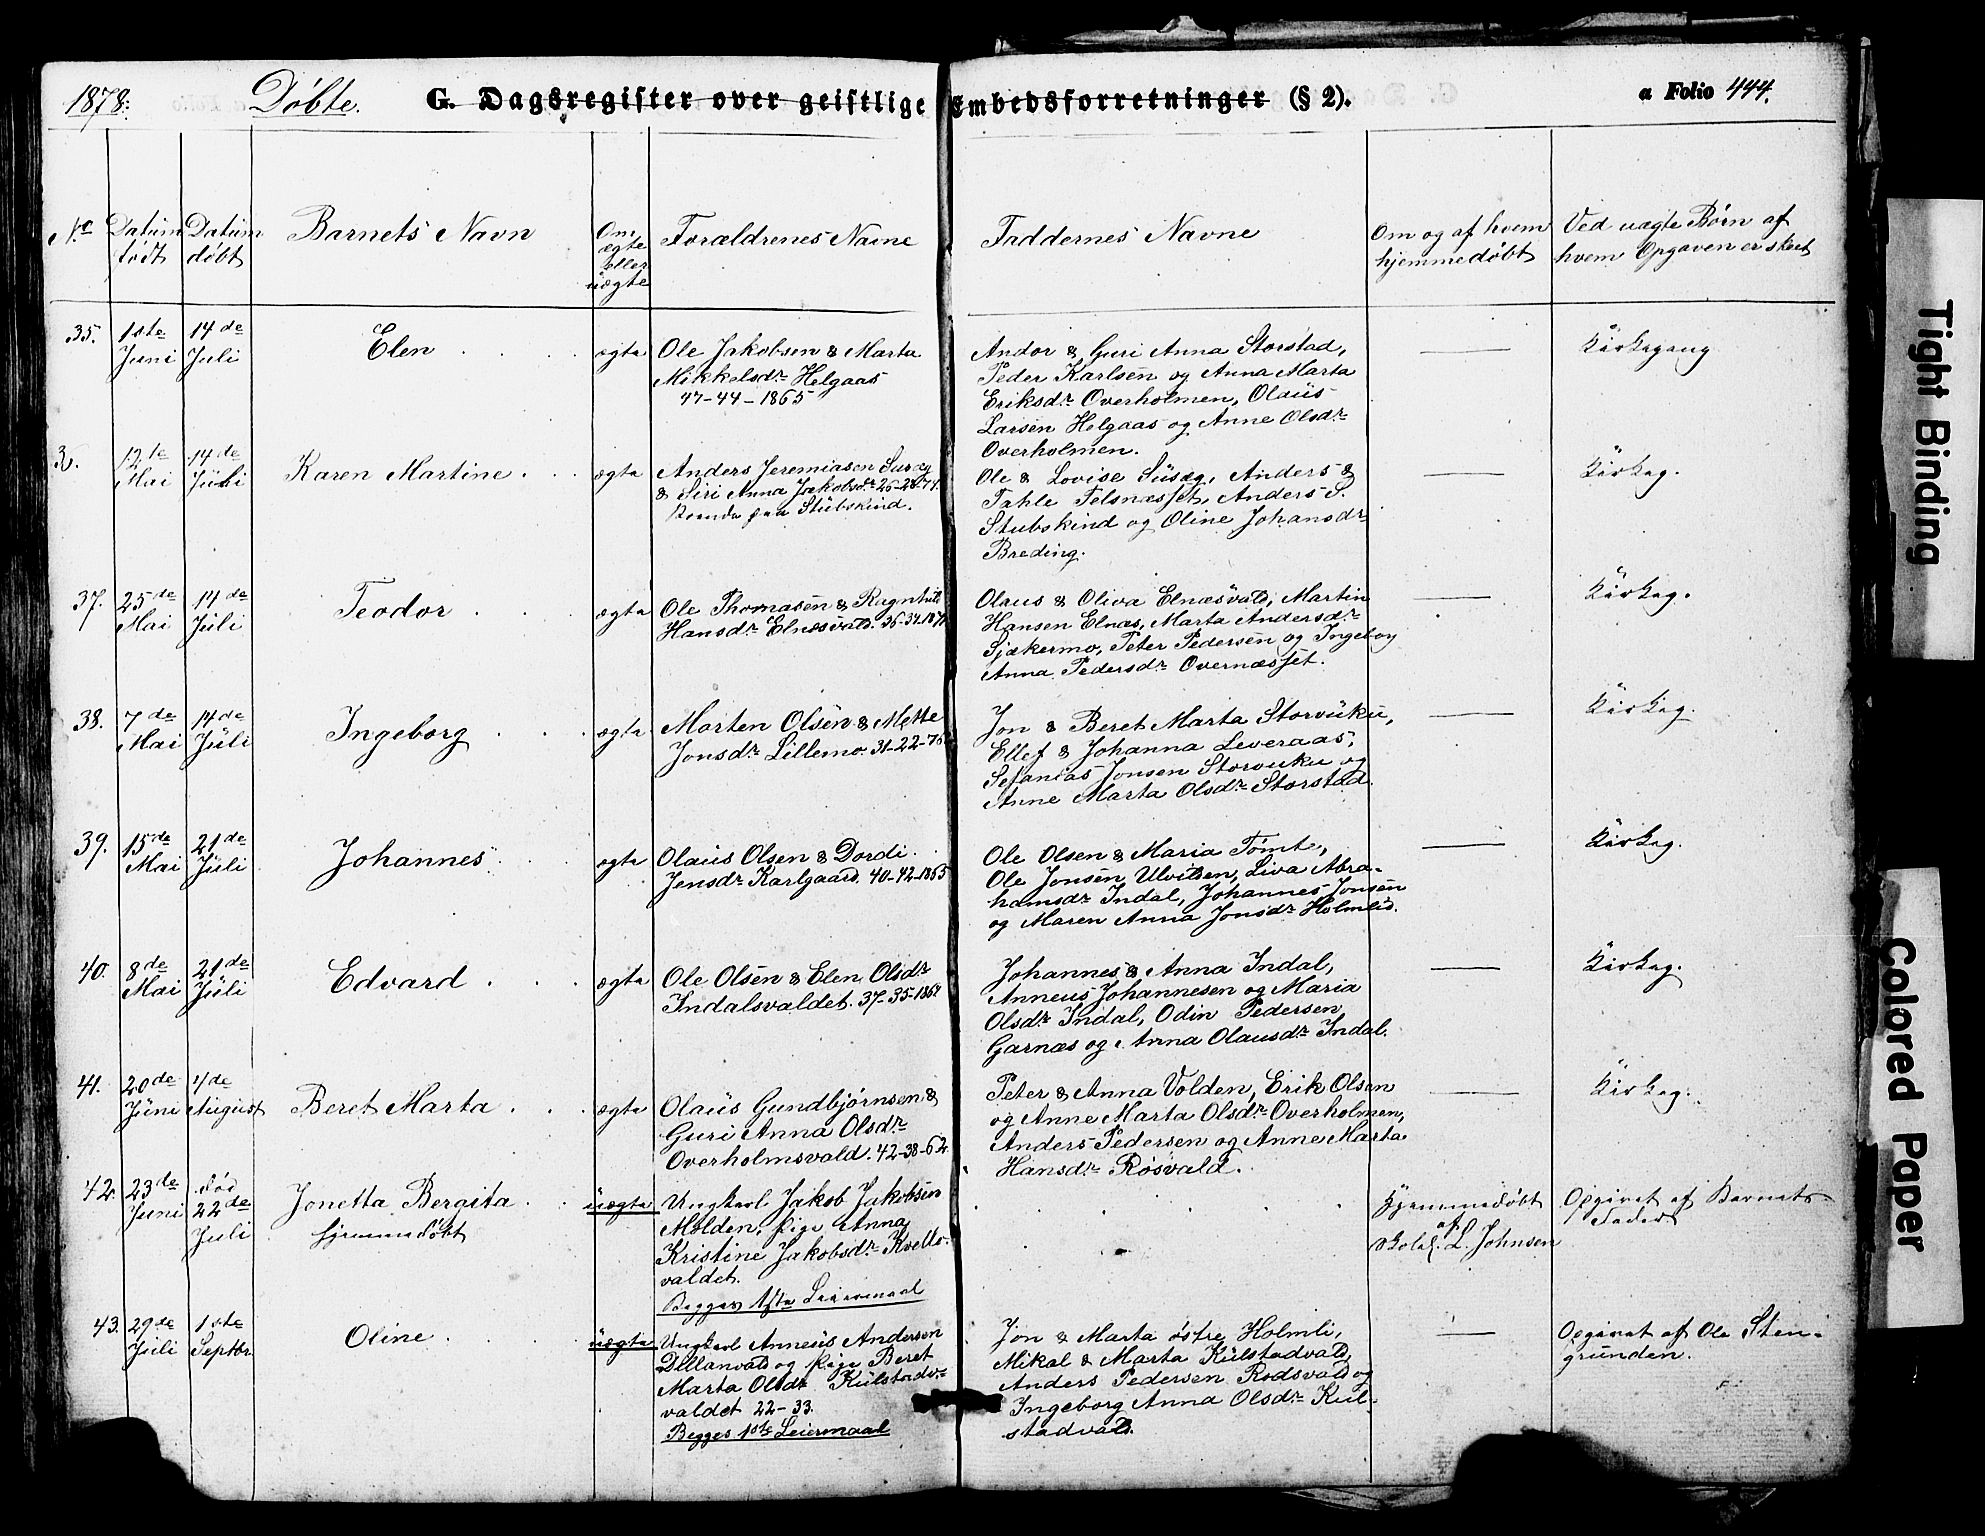 1878. Døbte. G. Dagsregister over geistlige Embedsforretninger (§ 2). a Folio 444.
No Datum født Datum døbt Barnets Navn Om ægte eller uægte Forældrenes Navne Faddernes Navne Om og af hvem hjemmedøbt Ved uægte Børn af hvem Opgaven er skeet
35. 1ste Juni 14de Juli Elen ægte
Ole Jakobsen & Marta
Mikkelsdr Helgaas
47-44-1865
Andor & Guri Anna Storstad,
Peder Karlsen og Anna Marta
Eriksdr Overholmen, Olaus
Larsen Helgaas og Anne Olsdr
Overholmen.
Kirkegang
12te Mai 14de Juli Karen Martine ægte
Anders Jeremiasen Susæg
& Siri Anna Jakobsdr
Boende paa Stubskind.
Ole & Lovise Susæg, Anders &
Tahle Felsnæsset, Anders S.
Stubskind og Oline Johansdr
Breding.
Kirkeg.
37. 25de Mai 14de Juli Teodor ægte
Ole Thomasen & Ragnhild
Hansdr Elnæsvald. 36-37
Olaus & Oliva Elnæsvald, Martin
Hansen Elnæs, Marta Andersdr
Sjækermo, Peter Pedersen og Ingeborg
Anna Pedersdr Overnæsset.
Kirkeg.
38. 7de Mai 14de Juli Ingeborg ægte
Morten Olsen & Mette
Jonsdr Lillemo 31-22-76
Jon & Beret Marta Storvuku,
Ellef & Johanna Leveraas,
Sefanias Jonsen Storvuku og
Anne Marta Olsdr Storstad.
Kirkeg.
39. 15de Mai 21de Juli Johannes ægte
Olaus Olsen & Dordi
Jensdr Karlgaard. 40-42-1865
Ole Olsen & Maria Tømte,
Ole Jonsen Ulvilsen, Liva Abra-
hamsdr Indal, Johannes Jonsen
og Maren Anna Jonsdr Holmlid.
Kirkeg.
40. 8de Mai 21de Juli Edvard ægte
Ole Olsen & Elen Olsdr
Indalsvaldet. 37-35
Johannes & Anna Indal,
Anneus Johannesen og Maria
Olsdr Indal, Odin Pedersen
Garnæs og Anna Olausdr Indal.
Kirkeg.
41. 20de Juni 4de August Beret Marta ægte
Olaus Gundbjørnsen &
Guri Anna Olsdr
Overholmsvald. 42-38-62
Peter & Anna Volden, Erik Olsen
og Anne Marta Olsdr Overholmen,
Anders Pedersen og Anne Marta
Hansdr Røsvald.
Kirkeg.
42. 23de Juni død 22de Juli Jonetta Bergita
hjemmedøbt
uægte
Ungkarl Jakob Jakobsen
Molden, pige Anna
Kristine Jakobsdr Kvello-
valdet.
Begges 1ste Leiermaal
Hjemmedøbt
af
Skolel. L. Johnsen
Opgivet af Barnets
Fader
43. 29de Juli 1ste Septbr. Oline uægte
Ungkarl Anneus Andersen
Dillanvald og pige Beret
Marta Olsdr Kulstadv-
valdet 22-33.
Begges 1ste Leiermaal
Jon & Marta østre Holmli,
Mikal & Marta Kulstadvald,
Anders Pedersen Rodsvald og
Ingeborg Anna Olsdr Kul-
stadvald.
Opgivet af Ole Sten-
grunden.
Tight Binding
Colored Paper